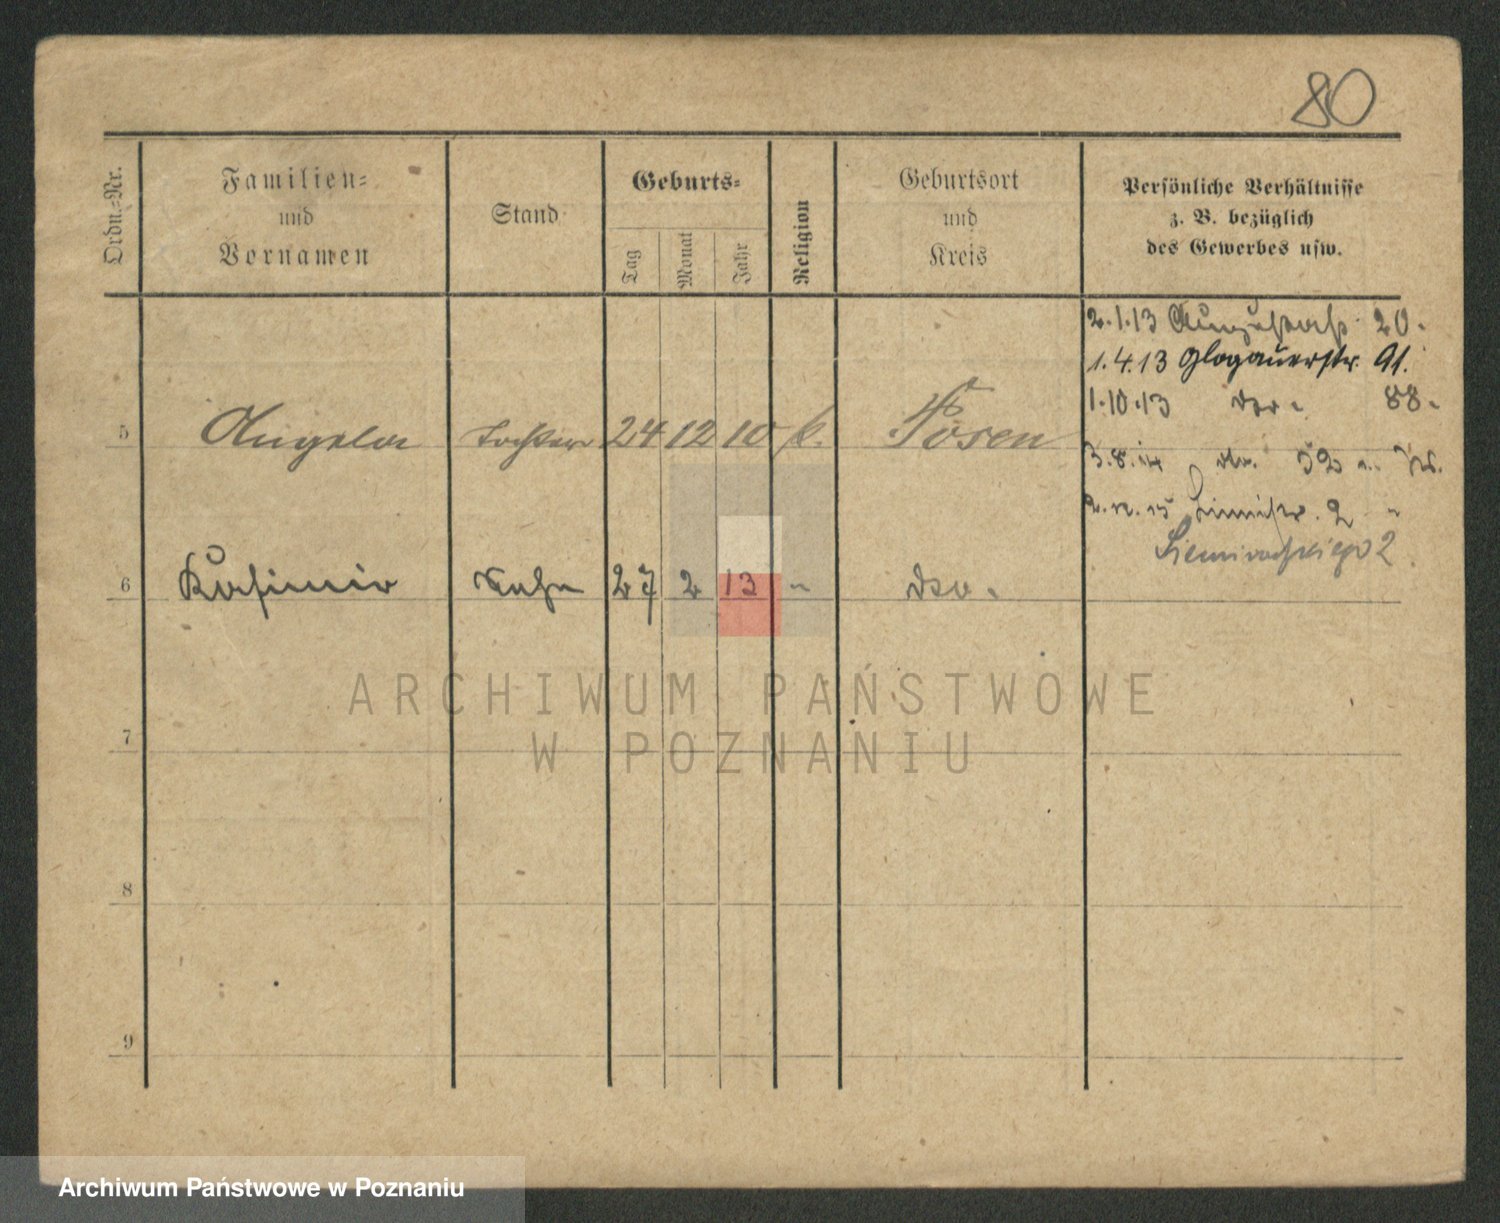 80
Ordn.-Nr.
Familien-
und
Vornamen
Stand
Geburts-
Tag
Monat
Jahr
Religion
Geburtsort
und
Kreis
Persönliche Verhältnisse
z. B. bezüglich
des Gewerbes usw.
2.1.13 20.
1.4.13 Glogauerstr. 91.
1.10.13 dto. 88.
5 Angela Tochter 24 12 10 k. Posen
3.8.14 dto. 52
2. 2
6 Kasimir Sohn 27 2 13 " dto.
7
8
9
ARCHIWUM PAŃSTWOWE
W POZNANIU
Archiwum Państwowe w Poznaniu